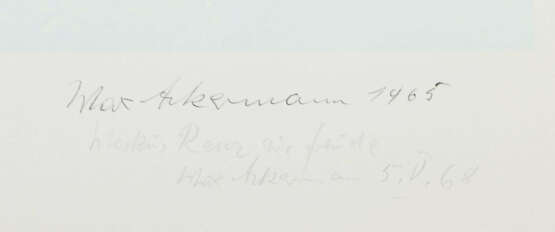 Max Ackermann 1965
Markus Renz zur freude
Max Ackermann 5.V.68